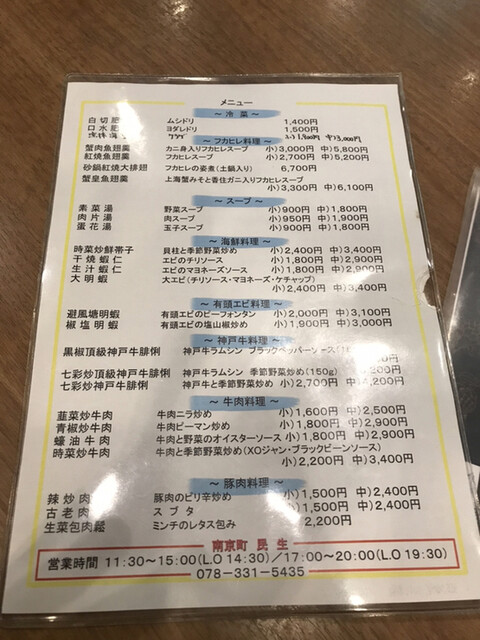 メニュー
～ 冷 菜 ～
白切肥 ムシドリ 1,400円
口水肥 ヨダレドリ 1,500円
クラゲ 小)1,500円 中)3,000円
～ フカヒレ料理 ～
蟹肉魚翅羹 カニ身入りフカヒレスープ 小)3,000円 中)5,800円
紅燒魚翅羹 フカヒレスープ 小)2,700円 中)5,200円
砂鍋紅燒大排翅 フカヒレの姿煮(土鍋入り) 6,700円
蟹皇魚翅羹 上海蟹みそと香住ガニ入りフカヒレスープ
小)3,300円 中)6,100円
～ スープ ～
素菜湯 野菜スープ 小)900円 中)1,800円
肉片湯 肉スープ 小)950円 中)1,900円
蛋花湯 玉子スープ 小)900円 中)1,800円
～ 海鮮料理 ～
時菜炒鮮帯子 貝柱と季節野菜炒め 小)2,400円 中)3,400円
干焼蝦仁 エビのチリソース 小)1,800円 中)2,900円
生汁蝦仁 エビのマヨネーズソース 小)1,800円 中)2,900円
大明蝦 大エビ(チリソース・マヨネーズ・ケチャップ)
小)2,400円 中)3,400円
～ 有頭エビ料理 ～
避風塘明蝦 有頭エビのビーフォンタン 小)2,000円 中)3,100円
椒塩明蝦 有頭エビの塩山椒炒め 小)1,900円 中)3,000円
～ 神戸牛料理 ～
黒椒頂級神戸牛腓俐 神戸牛ラムシン ブラックペッパーソース
七彩炒頂級神戸牛腓俐 神戸牛ラムシン 季節野菜炒め(150g)
七彩炒神戸牛腓俐 神戸牛と季節野菜炒め 小)2,700円 中)4,200円
～ 牛肉料理 ～
韮菜炒牛肉 牛肉ニラ炒め 小)1,600円 中)2,500円
青椒炒牛肉 牛肉ピーマン炒め 小)1,800円 中)2,900円
蠔油牛肉 牛肉と野菜のオイスターソース 小)1,800円 中)2,900円
時菜炒牛肉 牛肉と季節野菜炒め(XOジャン・ブラックビーンソース)
小)2,200円 中)3,400円
～ 豚肉料理 ～
辣炒肉 豚肉のピリ辛炒め 小)1,500円 中)2,400円
古老肉 スブタ 小)1,500円 中)2,400円
生菜包肉鬆 ミンチのレタス包み 2,200円
南京町 民生
営業時間 11:30～15:00(L.O 14:30)/17:00～20:00(L.O 19:30)
078-331-5435